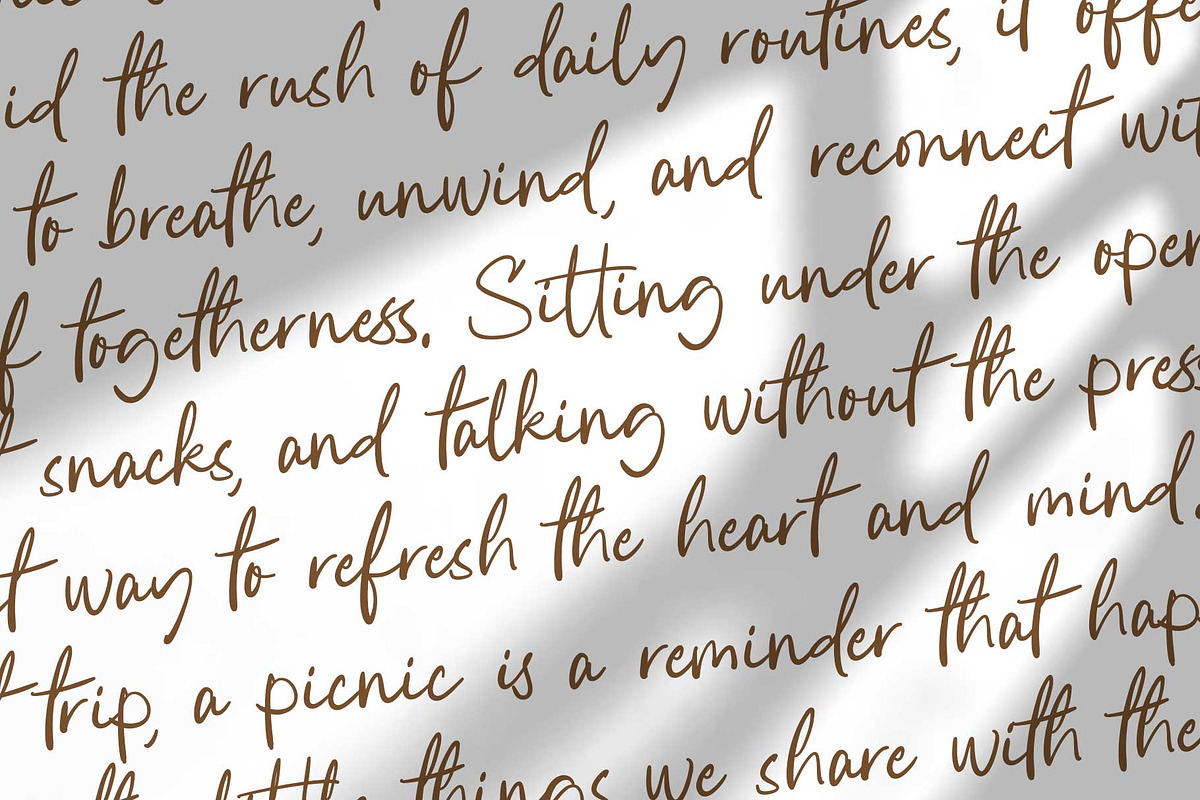 the rush of daily routines, it
to breathe, unwind, and reconnect
togetherness. Sitting under the
snacks, and talking without the
way to refresh the heart and mind.
trip, a picnic is a reminder that
little things we share with the